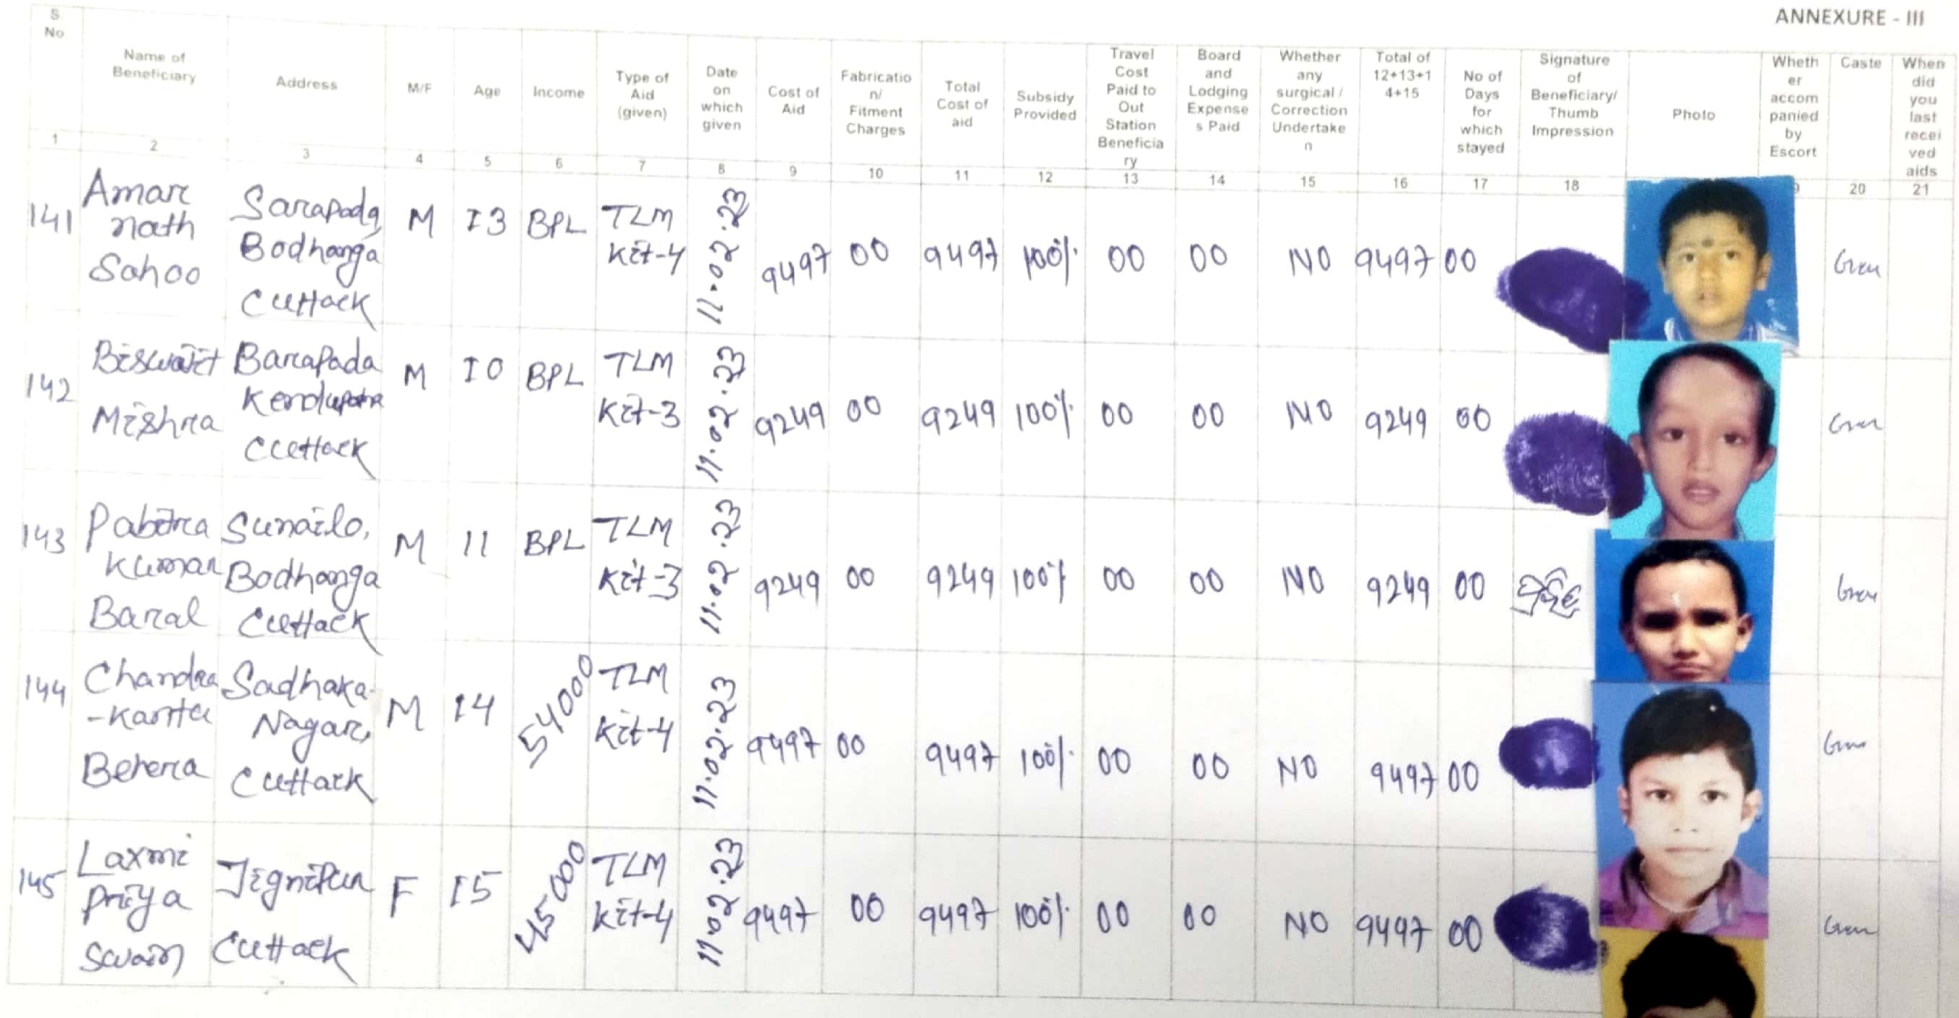 ANNEXURE - III
S No | Name of Beneficiary | Address | M/F | Age | Income | Type of Aid (given) | Date on which given | Cost of Aid | Fabricatio n/ Fitment Charges | Total Cost of aid | Subsidy Provided | Travel Cost Paid to Out Station Beneficia ry | Board and Lodging Expense s Paid | Whether any surgical / Correction Undertake n | Total of 12+13+1 4+15 | No of Days for which stayed | Signature of Beneficiary/ Thumb Impression | Photo | Wheth er accom panied by Escort | Caste | When did you last recei ved aids
1 | 2 | 3 | 4 | 5 | 6 | 7 | 8 | 9 | 10 | 11 | 12 | 13 | 14 | 15 | 16 | 17 | 18 | 20 | 21
141 | Amar nath Sahoo | Sarapada, Bodhanga Cuttack | M | 13 | BPL | TLM Kit-4 | 11.02.23 | 9497 | 00 | 9497 | 100% | 00 | 00 | NO | 9497 | 00 | Gen
142 | Biswajit Mishra | Barapada Kendupatna Cuttack | M | 10 | BPL | TLM Kit-3 | 11.02.23 | 9249 | 00 | 9249 | 100% | 00 | 00 | NO | 9249 | 00 | Gen
143 | Pabitra Kumar Baral | Sunailo, Bodhanga Cuttack | M | 11 | BPL | TLM Kit-3 | 11.02.23 | 9249 | 00 | 9249 | 100% | 00 | 00 | NO | 9249 | 00 | Gen
144 | Chandra -Kanta Behera | Sadhaka- Nagar, Cuttack | M | 14 | 54000 | TLM Kit-4 | 11.02.23 | 9497 | 00 | 9497 | 100% | 00 | 00 | NO | 9497 | 00 | Gen
145 | Laxmi Priya Swain | Jignipur Cuttack | F | 15 | 45000 | TLM Kit-4 | 11.02.23 | 9497 | 00 | 9497 | 100% | 00 | 00 | NO | 9497 | 00 | Gen